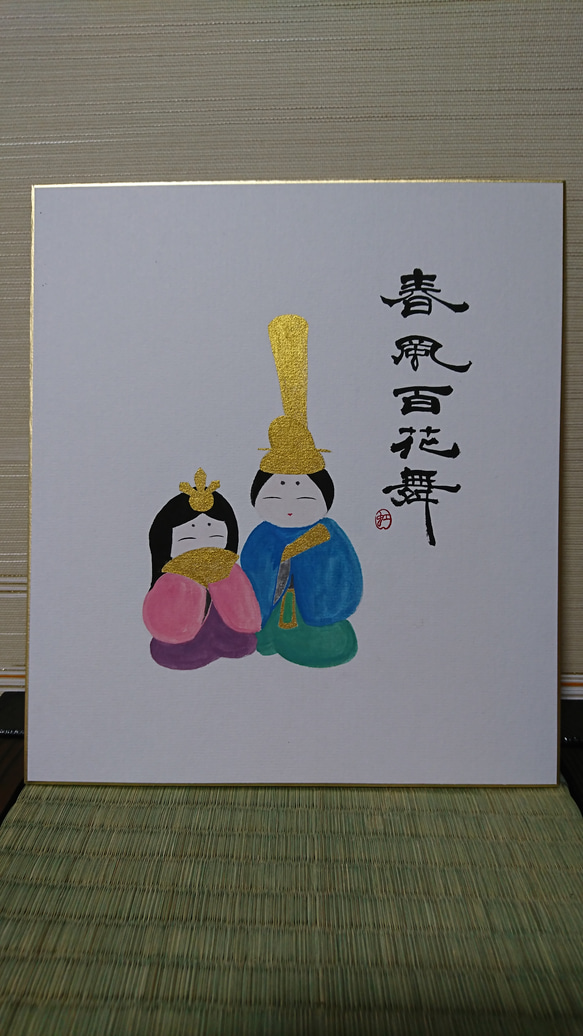 春風百花舞